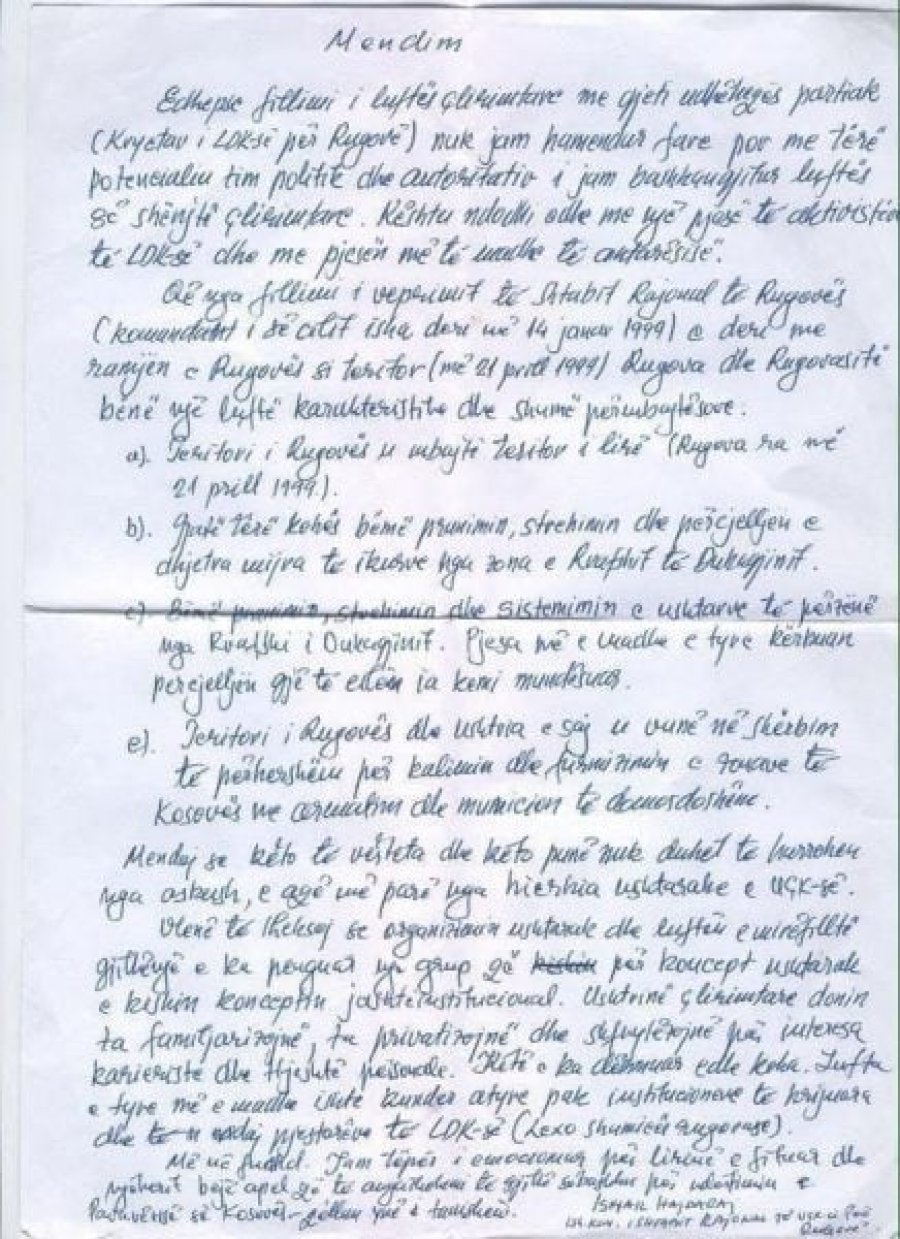 Mendim
Edhepse fillimi i luftës çlirimtare me gjeti udhëheqës partiak
(Kryetar i LDK-së për Rugovë) nuk jam hamendur fare por me tërë
potencialin tim politik dhe autoritativ i jam bashkangjitur luftës
së shënjtë çlirimtare. Kështu ndodhi edhe me një pjesë të aktivistëve
të LDK-së dhe me pjesën më të madhe të antarësisë.
Që nga fillimi i veprimit të Shtabit Rajonal të Rugovës
(komandant i së cilit isha deri më 14 janar 1999) e deri me
ramjen e Rugovës si teritor (më 21 prill 1999) Rugova dhe Rugovasitë
bënë një luftë karakteristike dhe shumë përmbajtësore.
a). Teritori i Rugovës u mbajtë teritor i lirë (Rugova ra më
21 prill 1999.).
b). Gjatë tërë kohës bëmë pranimin, strehimin dhe përcjelljen e
dhjetra mijra të ikurve nga zona e Rrafshit të Dukagjinit.
c). Bëmë pranimin, strehimin dhe sistemimin e ushtarve të përzënë
nga Rrafshi i Dukagjinit. Pjesa më e madhe e tyre kërkuan
percjelljen gjë të cilën ia kemi mundësuar.
e). Teritori i Rugovës dhe ushtria e saj u vunë në shërbim
të përhershëm për kalimin dhe furnizimin e zonave të
Kosovës me armatim dhe municion të domosdoshëm.
Mendoj se këto të vërteta dhe këto punë nuk duhet të harrohen
nga askush, e aqë më parë nga hierarkia ushtarake e UÇK-së.
Vlenë të theksoj se organizimin ushtarak dhe luftën e mirëfilltë
gjithënjë e ka penguar një grup që kishin për koncept ushtarak
e kishin konceptin jashtëinstitucional. Ushtrinë çlirimtare donin
ta familjarizojnë, ta privatizojnë dhe shfrytëzojnë për interesa
karieriste dhe thjeshtë personale. Këtë e ka dëshmuar edhe koha. Lufta
e tyre më e madhe ishte kundër atyre pak institucioneve të krijuara
dhe të ndaj pjestarëve të LDK-së (Lexo shumicës rugovase).
Më në fund. Jam tepër i emocionuar për lirinë e fituar dhe
njëherit bëjë apel që të angazhohemi të gjithë sëbashku për ndërtimin e
Pavarësisë së Kosovës - qëllimi ynë i tanishëm.
ISMAIL HAJDARAJ
ish kom. i SHTABIT RAJONAL TË UÇK-së për
Rugovë